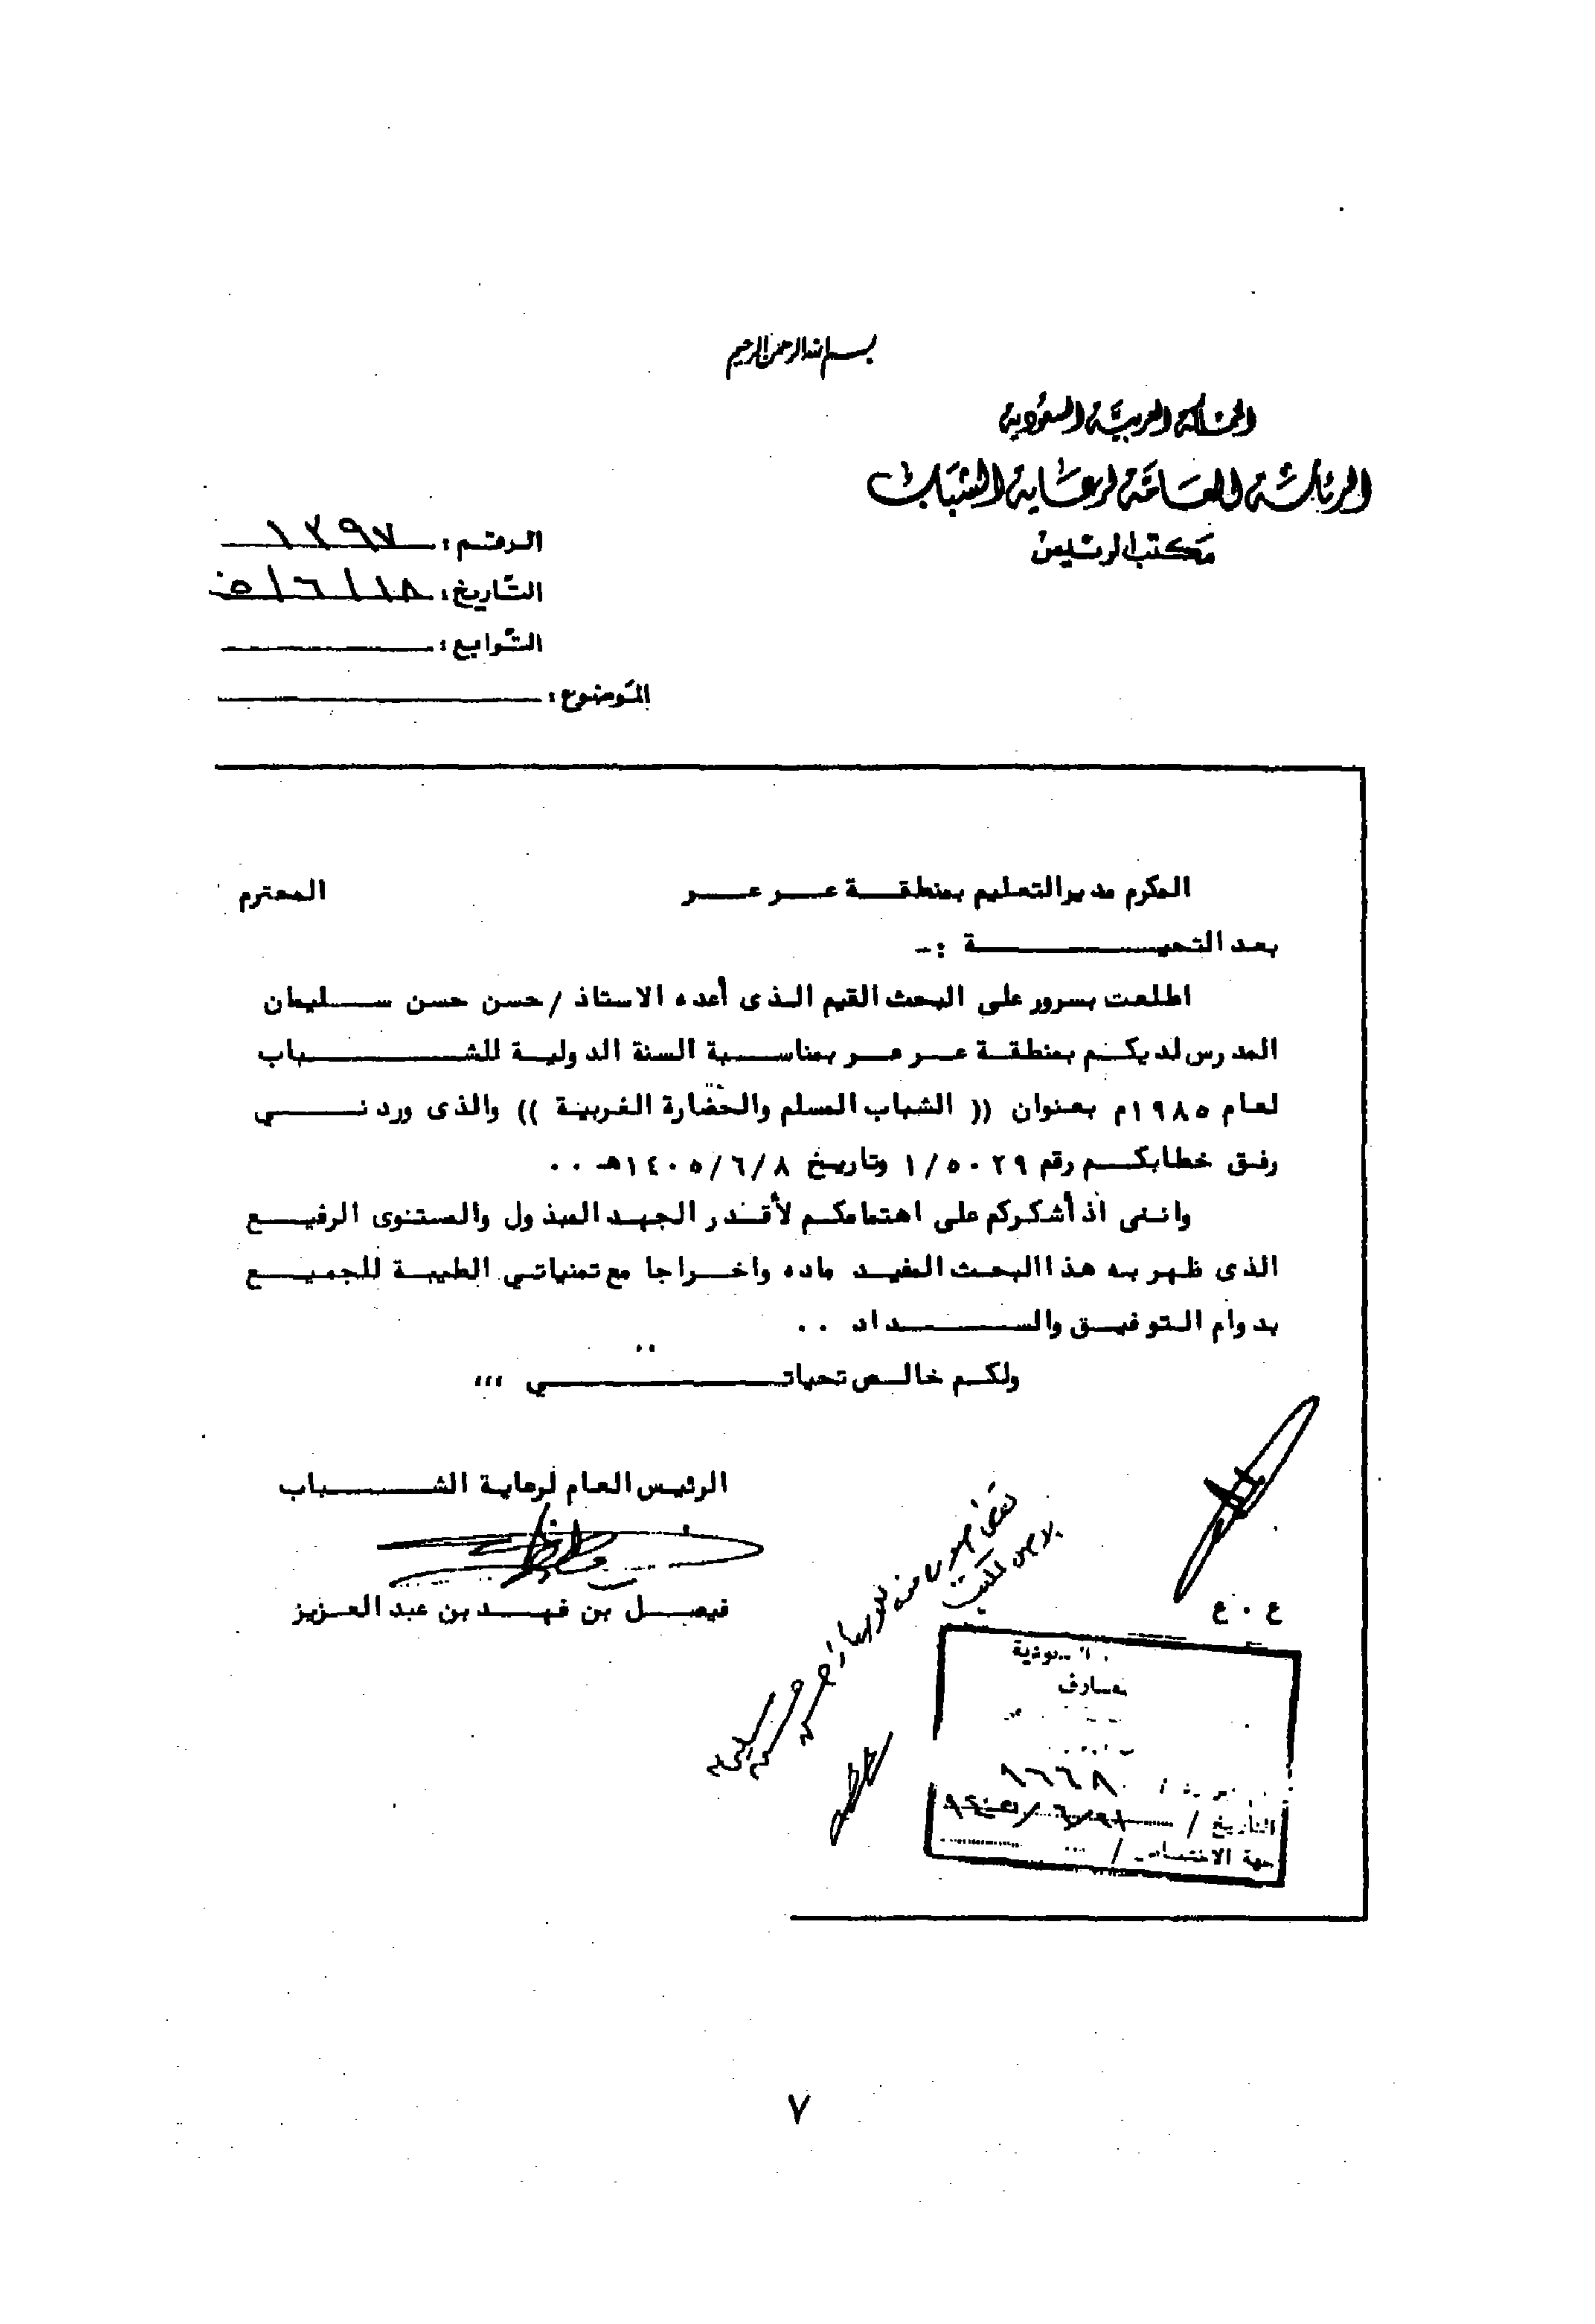 بسم الله الرحمن الرحيم
المملكة العربية السعودية
الرئاسة العامة لرعاية الشباب
مكتب الرئيس
الرقم : ١٣٩٧
التاريخ : ١٨/٦/٠٥
التوابع :
الموضوع :
المكرم مدير التعليم بمنطقة عرعر المحترم
بعد التحية :-
اطلعت بسرور على البحث القيم الذى أعده الاستاذ / حسن حسن سليمان
المدرس لديكم بمنطقة عرعر بمناسبة السنة الدولية للشباب
لعام ١٩٨٥م بعنوان (( الشباب المسلم والحضارة الغربية )) والذى وردنى
رفق خطابكم رقم ١/٥٠٢٩ وتاريخ ١٤٠٥/٦/٨هـ ..
واننى اذ أشكركم على اهتمامكم لأقدر الجهد المبذول والمستوى الرفيع
الذى ظهر به هذا البحث المفيد ماده واخراجا مع تمنياتي الطيبة للجميع
بدوام التوفيق والسداد ..
ولكم خالص تحياتي ،،،
الرئيس العام لرعاية الشباب
فيصل بن فهد بن عبد العزيز
ع . ع
التاريخ /
جهة الاختصاص /
٧